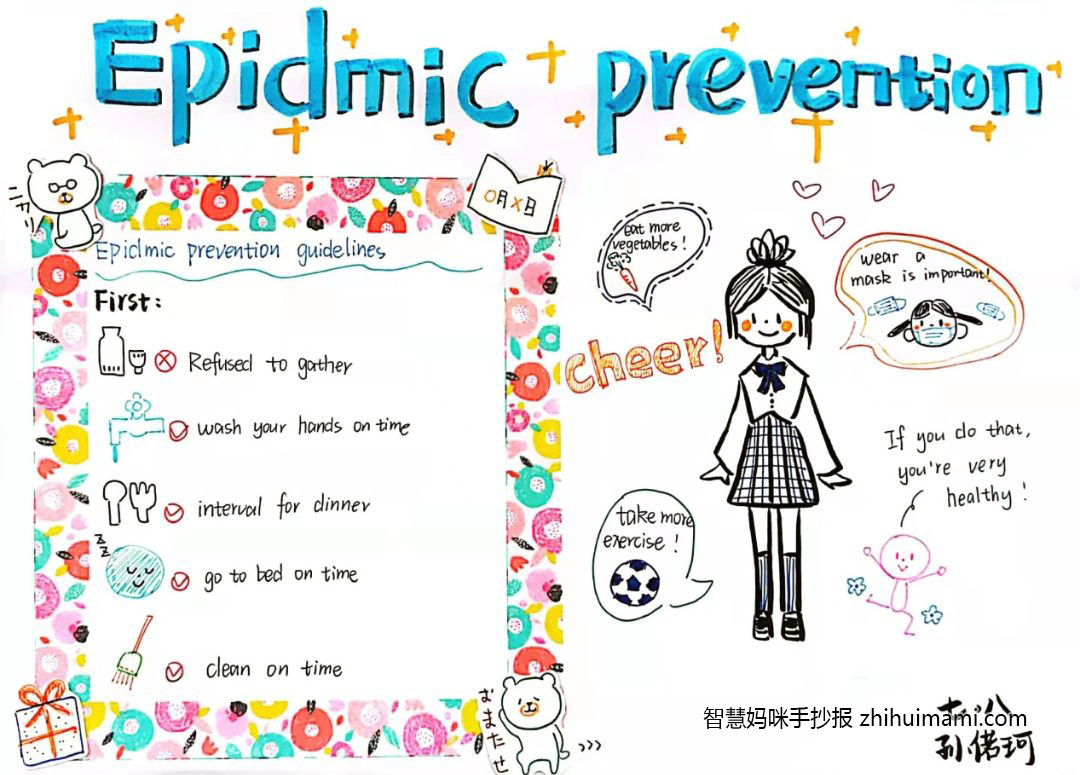 Epidmic prevention
○月×日
ニヤリ
Epidmic prevention guidelines
First:
Refused to gather
wash your hands on time
interval for dinner
zz
go to bed on time
clean on time
おまたせ
eat more
vegetables!
wear a
mask is important!
cheer!
take more
exercise!
If you do that,
you're very
healthy!
智慧妈咪手抄报 zhihuimami.com
孙偌珂